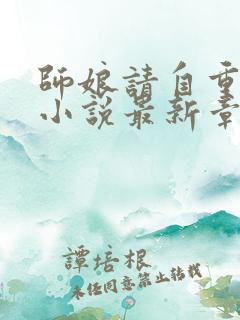 師娘請自重
小說最新章
譚培根
未經同意禁止轉載